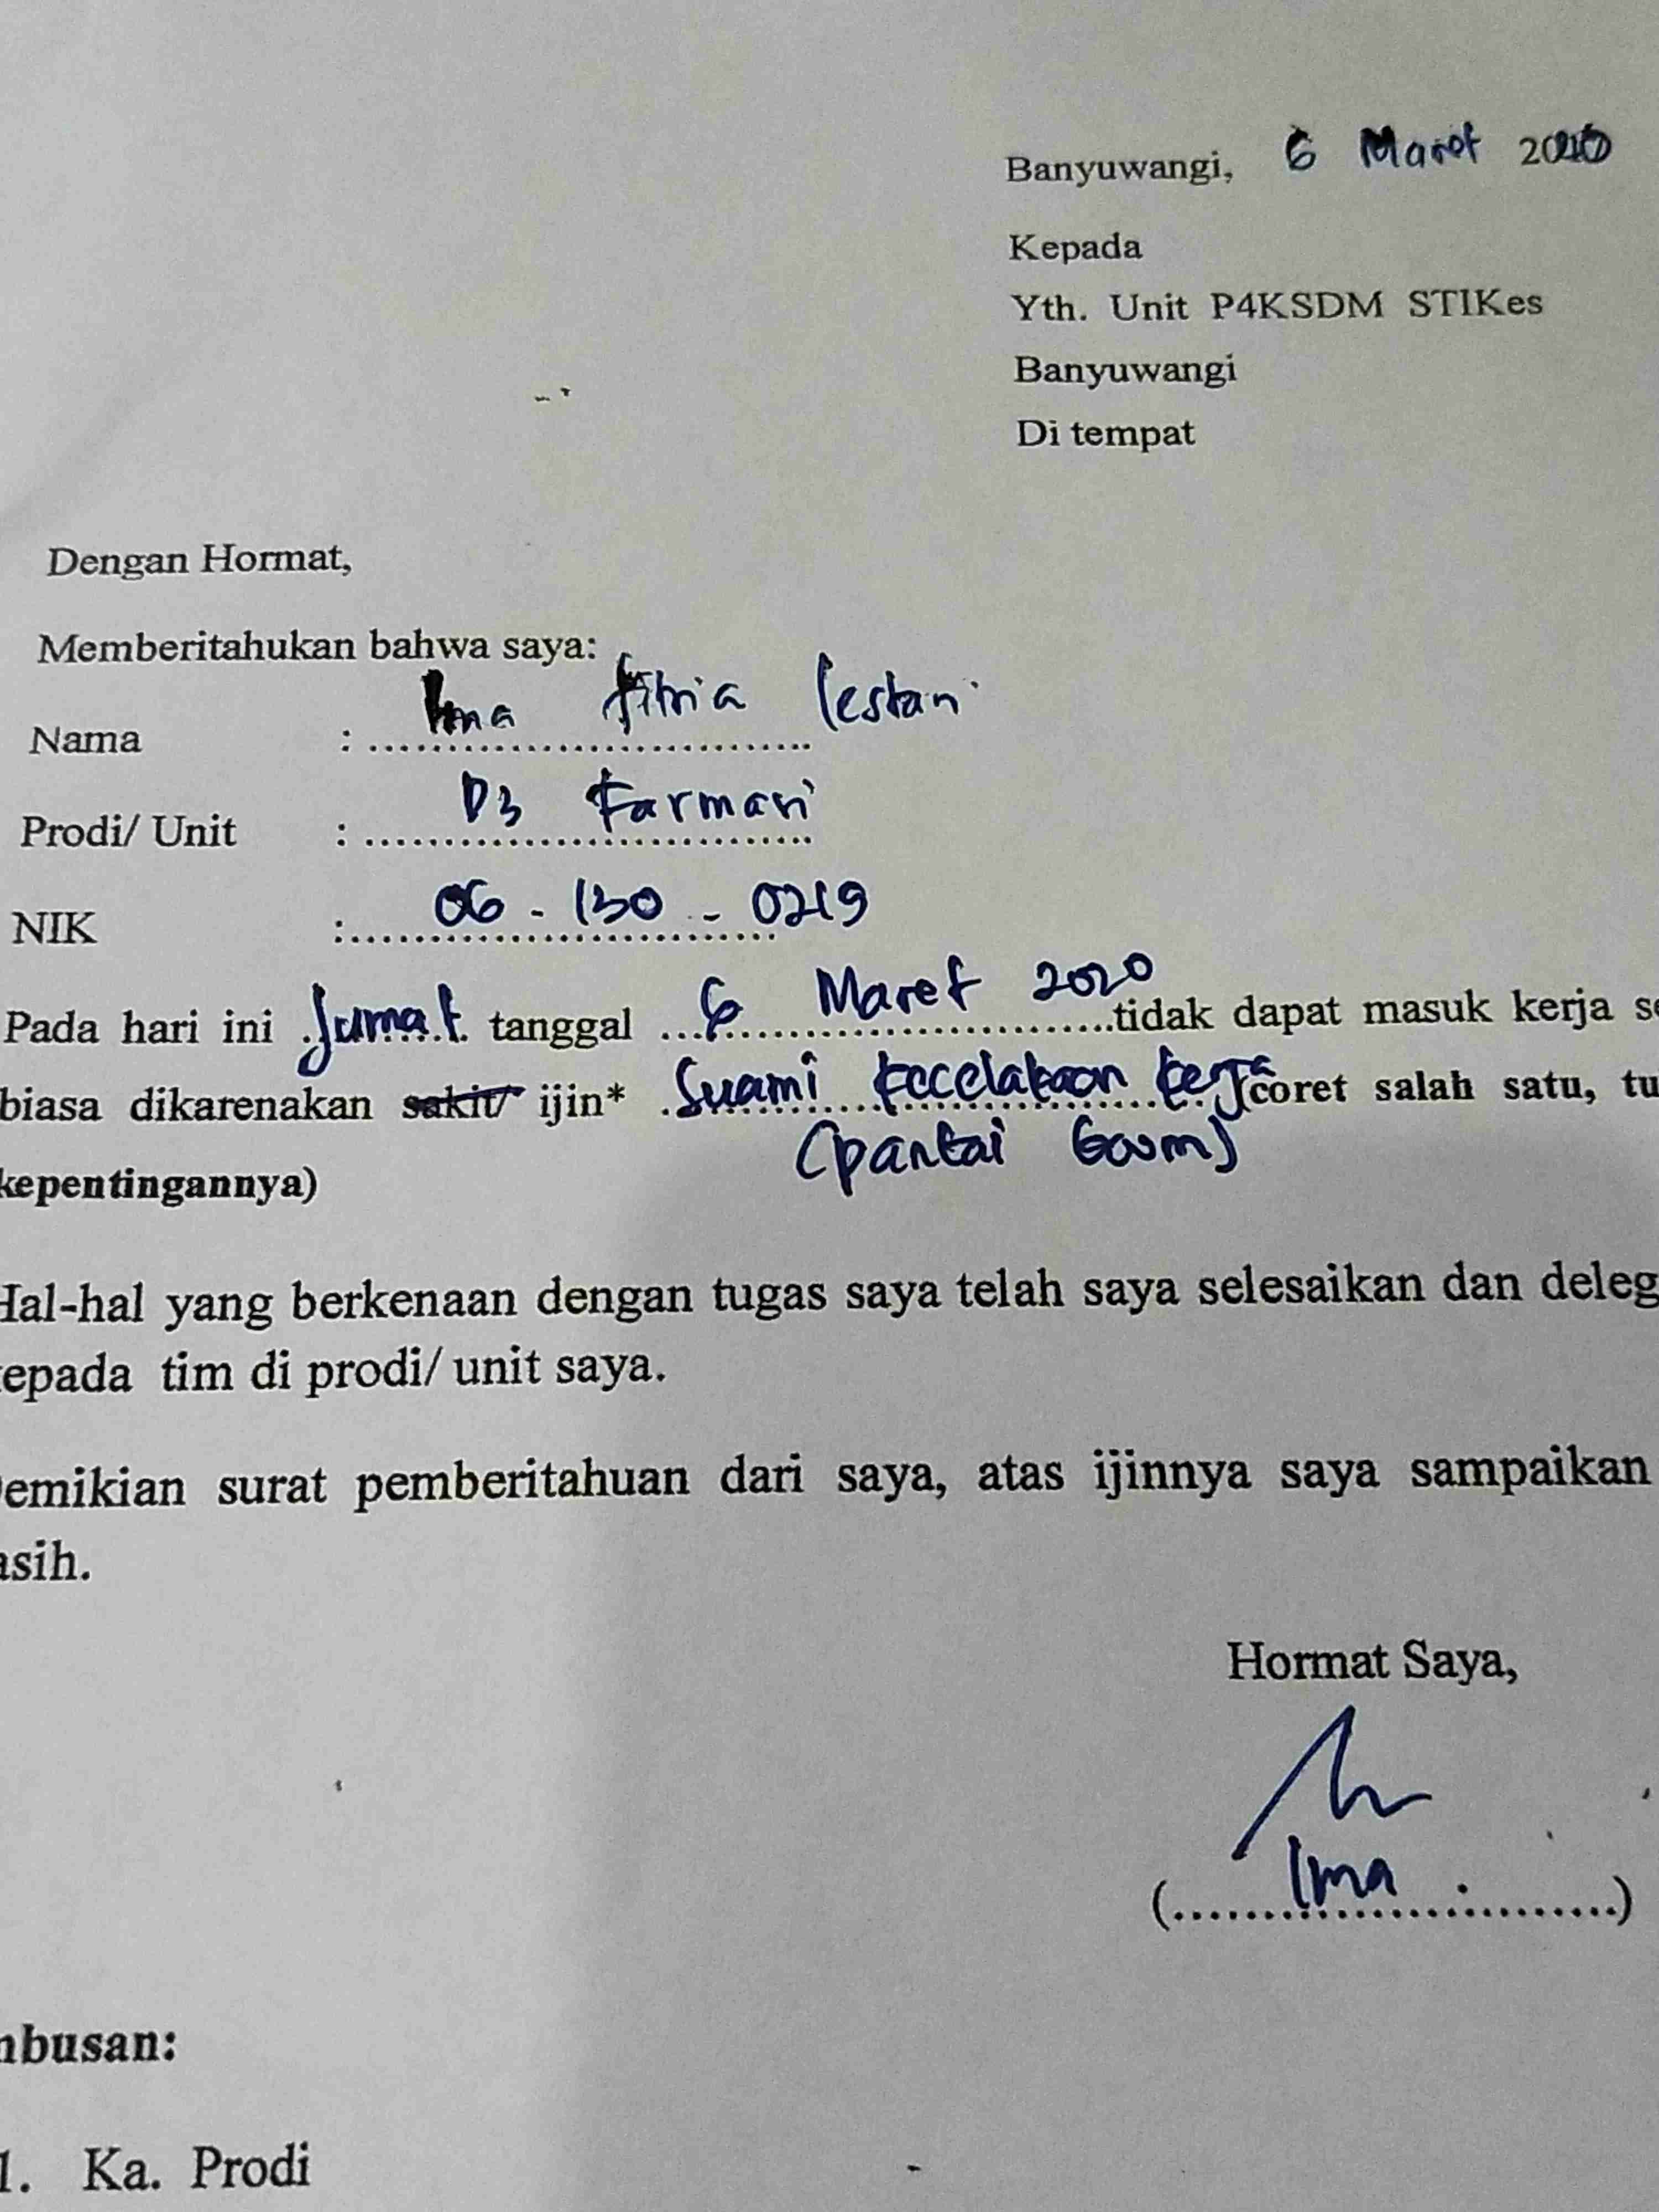 Banyuwangi, 6 Maret 2020
Kepada
Yth. Unit P4KSDM STIKes
Banyuwangi
Di tempat
Dengan Hormat,
Memberitahukan bahwa saya:
Nama : Ima fitria lestari
Prodi/ Unit : D3 Farmasi
NIK : 06 - 130 - 0219
Pada hari ini Jumat tanggal 6 Maret 2020 tidak dapat masuk kerja se
biasa dikarenakan sakit/ ijin* Suami kecelakaan kerja (coret salah satu, tu
(pantai
kepentingannya)
Hal-hal yang berkenaan dengan tugas saya telah saya selesaikan dan deleg
kepada tim di prodi/ unit saya.
Demikian surat pemberitahuan dari saya, atas ijinnya saya sampaikan
asih.
Hormat Saya,
(Ima)
mbusan:
1. Ka. Prodi